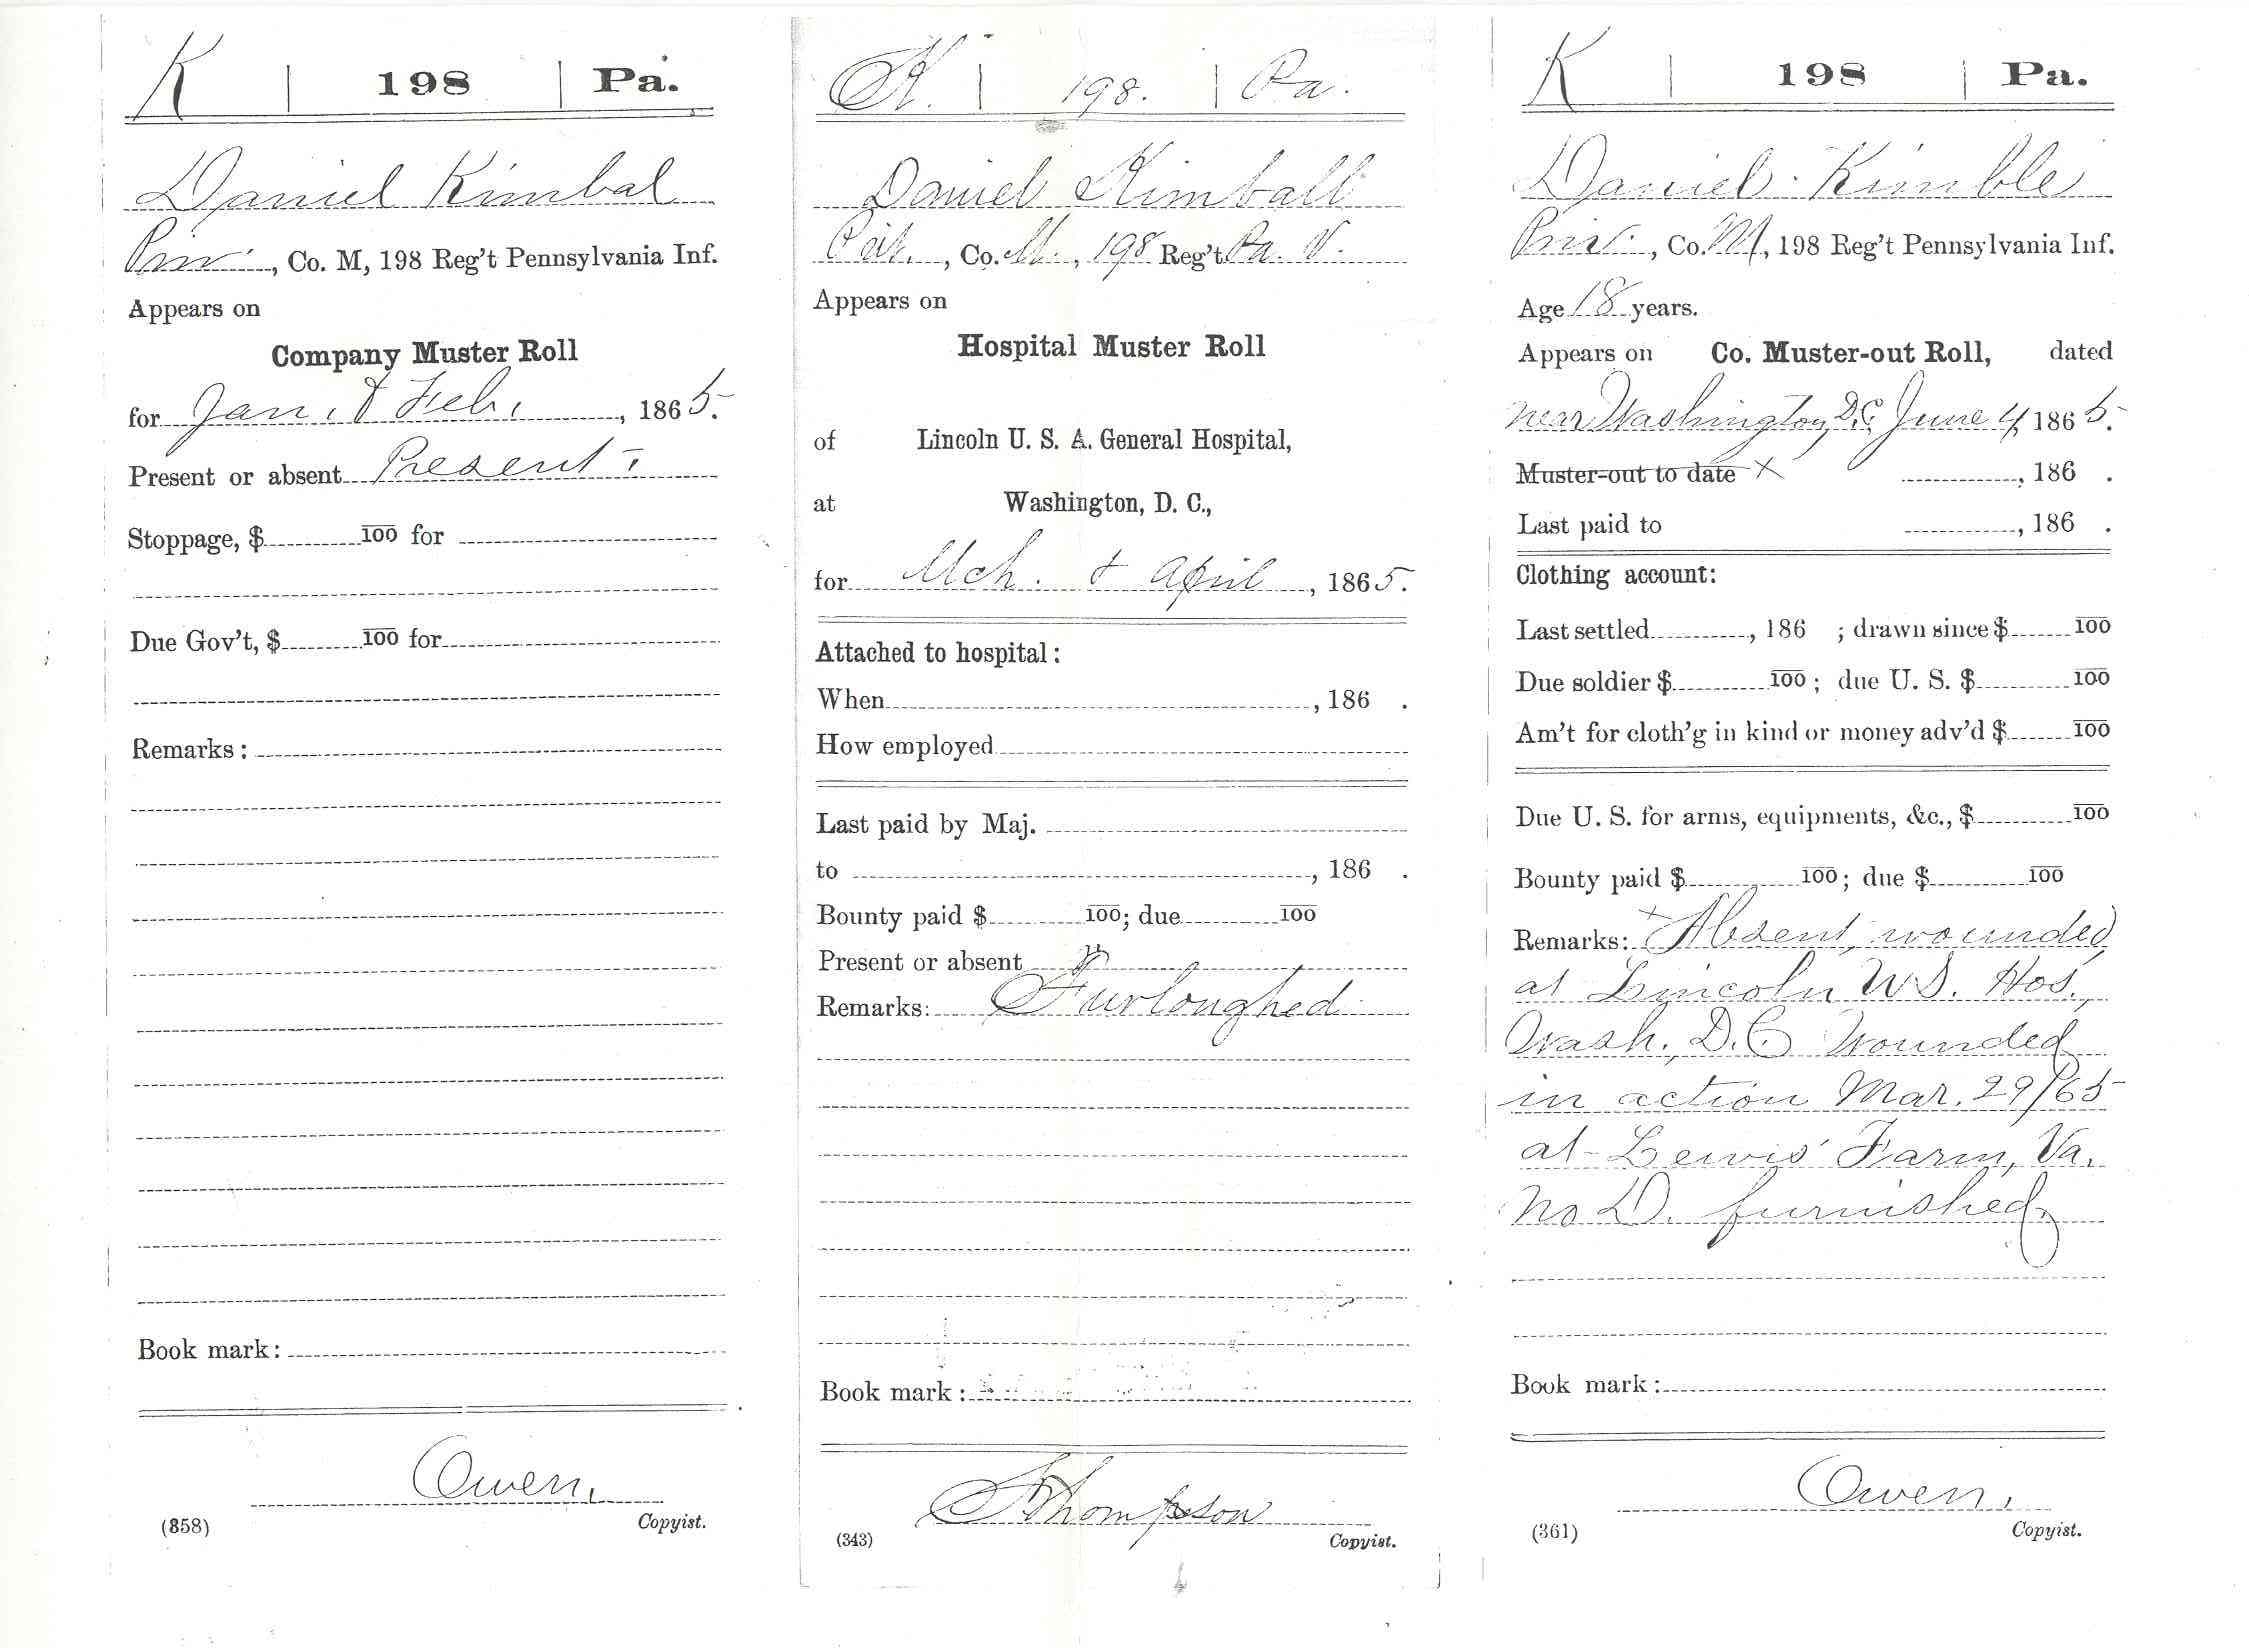 K | 198 | Pa.
Daniel Kimbal
Priv., Co. M, 198 Reg't Pennsylvania Inf.
Appears on
Company Muster Roll
for Jan. & Feb., 1865.
Present or absent Present.
Stoppage, $ 100 for
Due Gov't, $ 100 for
Remarks:
Book mark:
Owen,
(358) Copyist.
K. | 198. | Pa.
Daniel Kimball
Pvt., Co. M., 198 Reg't Pa. V.
Appears on
Hospital Muster Roll
of Lincoln U. S. A. General Hospital,
at Washington, D. C.,
for Mch. & April, 1865.
Attached to hospital:
When , 186 .
How employed
Last paid by Maj.
to , 186 .
Bounty paid $ 100; due 100
Present or absent
Remarks: Furloughed
Book mark:
Thompson
(343) Copyist.
K | 198 | Pa.
Daniel Kimble
Priv., Co. M, 198 Reg't Pennsylvania Inf.
Age 18 years.
Appears on Co. Muster-out Roll, dated
near Washington, D.C. June 4, 1865.
Muster-out to date X , 186 .
Last paid to , 186 .
Clothing account:
Last settled , 186 ; drawn since $ 100
Due soldier $ 100; due U. S. $ 100
Am't for cloth'g in kind or money adv'd $ 100
Due U. S. for arms, equipments, &c., $ 100
Bounty paid $ 100; due $ 100
Remarks: X Absent, wounded,
at Lincoln U.S. Hos.,
Wash. D.C. Wounded
in action Mar. 29/65
at Lewis' Farm, Va.
No D. furnished.
Book mark:
Owen,
(361) Copyist.